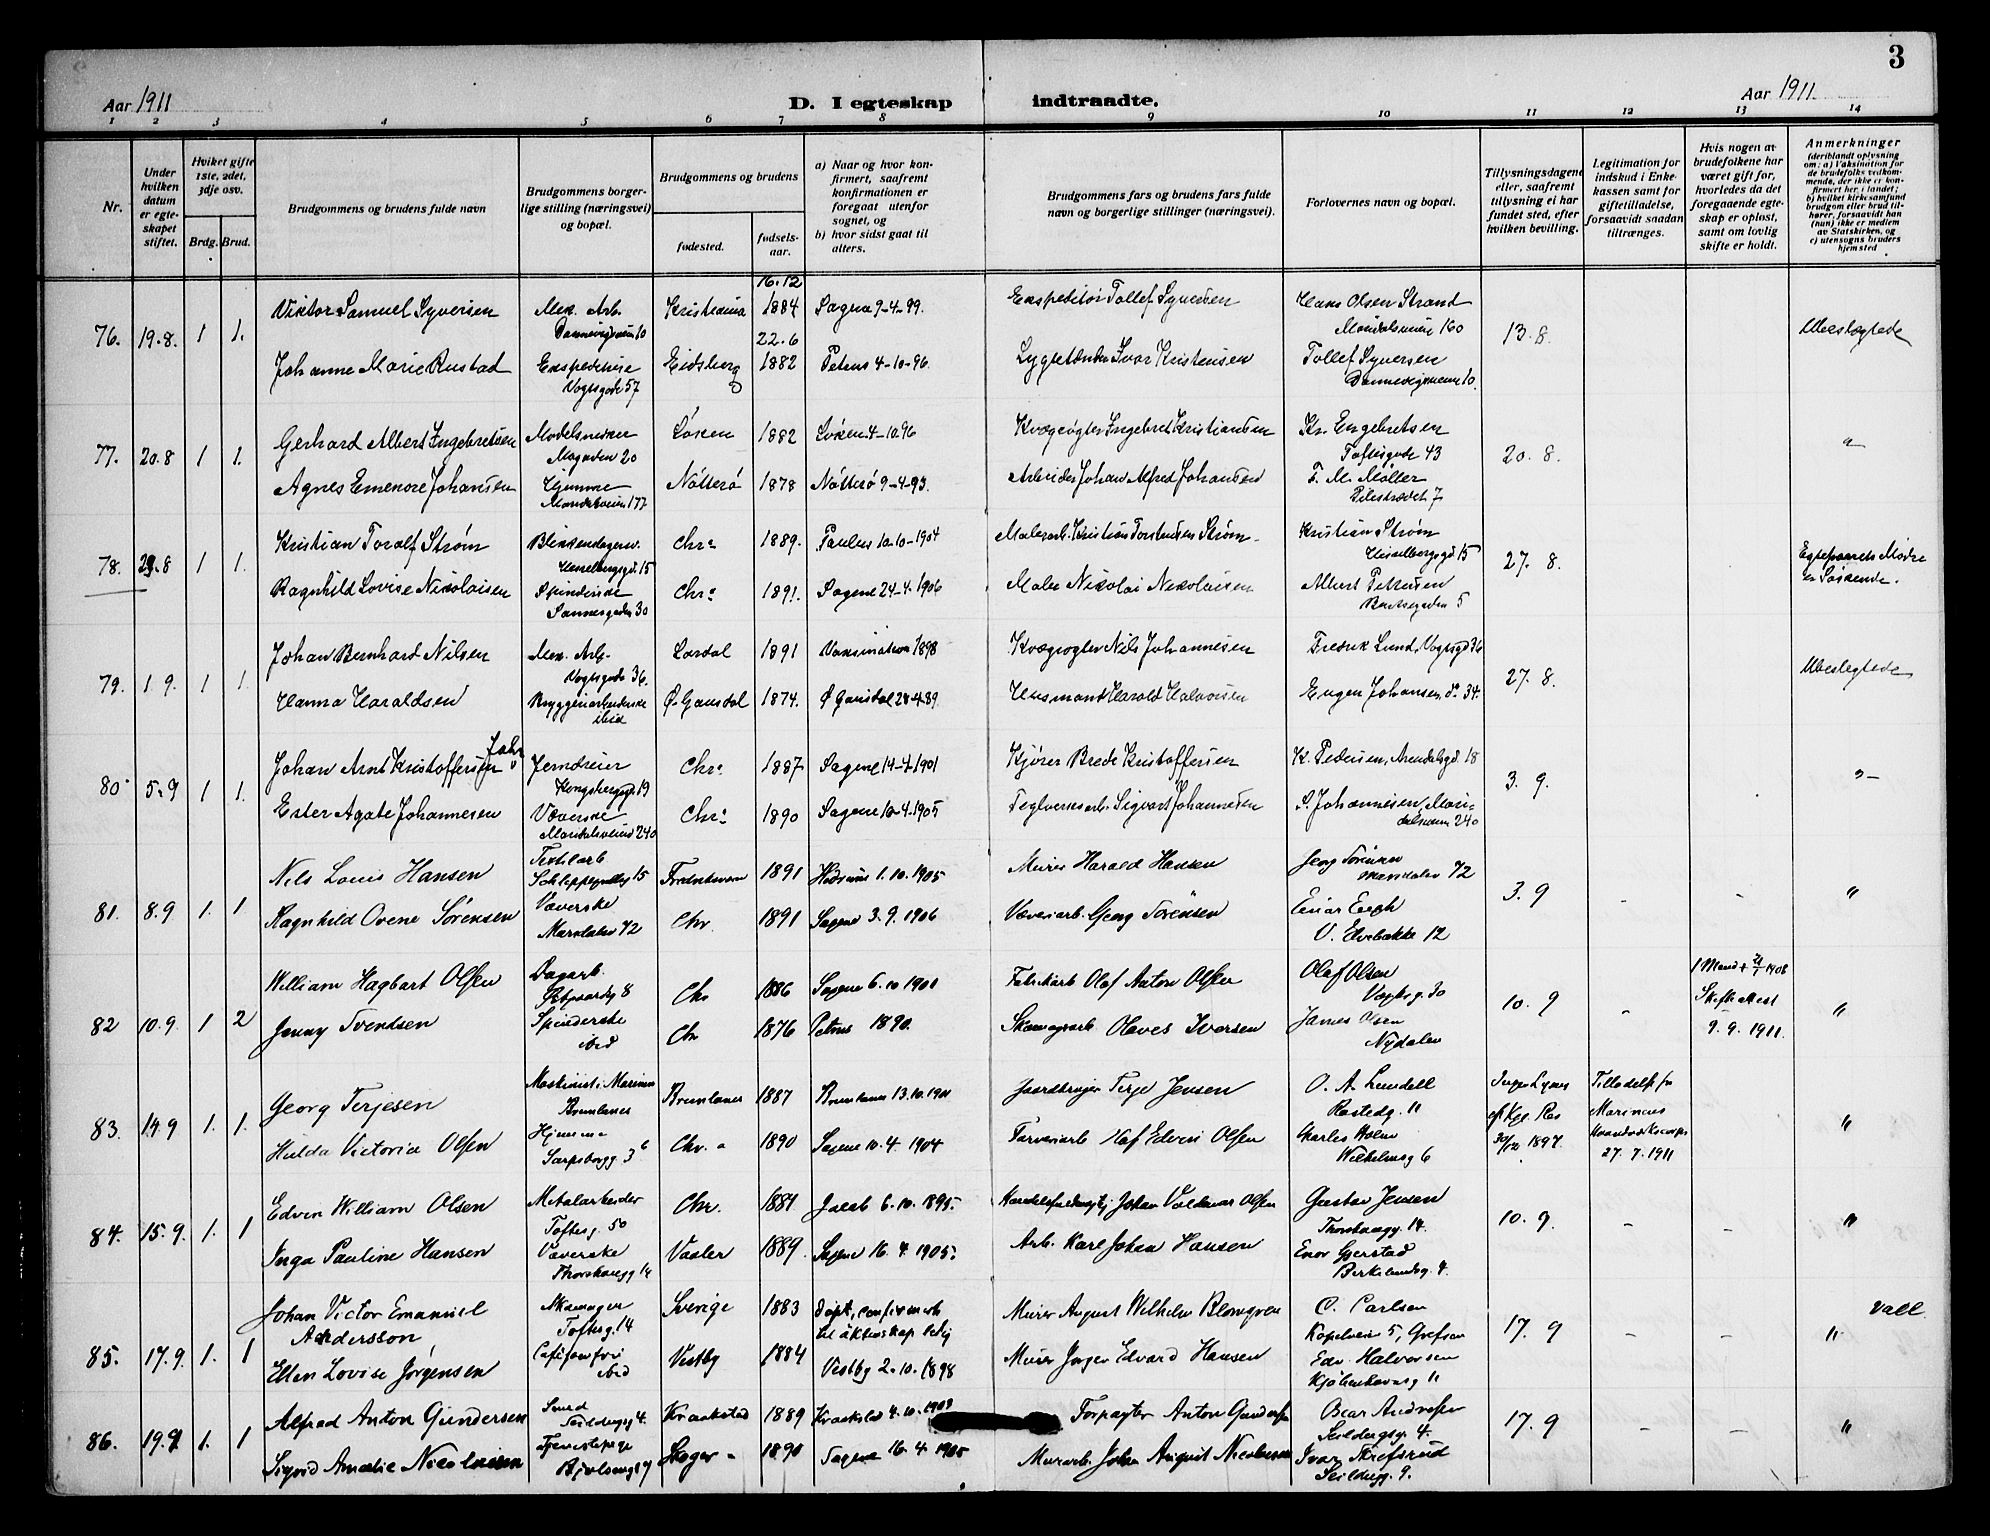 3
Aar 1911
D. I egteskap indtraadte.
Aar 1911.
1 2 3 4 5 6 7 8 9 10 11 12 13 14
Nr.
Under hvilken datum er egteskapet stiftet.
Hvilket gifte 1ste, 2det, 3dje osv.
Brdg. Brud.
Brudgommens og brudens fulde navn
Brudgommens borgerlige stilling (næringsvei) og bopæl.
Brudgommens og brudens
fødested.
fødselsaar.
a) Naar og hvor konfirmert, saafremt konfirmationen er foregaat utenfor sognet, og
b) hvor sidst gaat til alters.
Brudgommens fars og brudens fars fulde navn og borgerlige stillinger (næringsvei).
Forlovernes navn og bopæl.
Tillysningsdagene eller, saafremt tillysning ei har fundet sted, efter hvilken bevilling.
Legitimation for indskud i Enkekassen samt for giftetilladelse, forsaavidt saadan tiltrænges.
Hvis nogen av brudefolkene har været gift før, hvorledes da det foregaaende egteskap er opløst, samt om lovlig skifte er holdt.
Anmerkninger
(deriblandt oplysning om: a) Vaksination for de brudefolks vedkommende, der ikke er konfirmert her i landet; b) hvilket kirkesamfund brudgom eller brud tilhører, forsaavidt han (hun) ikke er medlem av Statskirken, og c) utensogns bruders hjemsted
76. 19.8. 1 1.
Viktor Samuel Syversen
Mek. Arb.
Dannevigsveien 10
Kristiania
16.12 1884
Sagene 9-4-99.
Ekspeditør Tollef Syversen
Hans Olsen Strand
Maridalsveien 160
13.8.
Ubeslegtede
Johanne Marie Rustad
Ekspeditrise
Vogtsgade 57
Eidsberg
22.6 1882
Petrus 4-10-96.
Lygtetænder Ivar Kristensen
Tollef Syversen
Dannevigsveien 10.
77. 20.8 1 1.
Gerhard Albert Ingebretsen
Modelsnekker
20
Løken
1882
Løken 4-10.96
Kvægrøgter Ingebret Kristiansen
Kr. Engebretsen
Toftesgade 43
20.8.
Agnes Emenore Johansen
Hjemme
Maridalsveien 177
Nøtterø
1878
Nøtterø 9-4-93.
Arbeider Johan Alfred Johansen
F. M. Møller
Pilestrædet 7
78. 29.8 1 1.
Kristian Toralf Strøm
Blikkenslagersv.
Hesselbergsgd. 15
Chra
1889.
Paulus 10.10-1904
Malerarb. Kristian Torstensen Strøm.
Kristian Strøm
Hesselbergsgd 15
27.8.
Egteparrets Mødre
er Søskende.
Ragnhild Lovise Nikolaisen
Spinderske
Sannergaden 30
Chra
1891.
Sagene 24-4-1906
Maler Nikolai Nikolaisen
Albert Pettersen
5
79. 1 9. 1 1.
Johan Bernhard Nilsen
Mek. Arb.
Vogtsgade 36.
Lardal
1891
Vaksination 1898
Kvægrøgter Nils Johannesen
Fredrik Lund, Vogtsgd 36
27.8.
Ubeslegtede
Hanna Haraldsen
Bryggeriarbeiderske
ibid
Ø. Gausdal
1874.
Ø Gausdal 28-4-89.
Husmand Harald Halvorsen
Eugen Johansen, do 34.
80. 5.9 1 1.
Johan Arnt Kristoffersen
Jerndreier
Kongsbergsgd. 19
Chra
1887
Sagene 14-4-1901
Kjører Brede Kristoffersen
K. Pedersen, Arendalsgd. 18
3.9.
Ester Agate Johannesen
Væverske
Maridalsveien 240
Chra
1890
Sagene 16-4-1905
Teglverksarb. Sigvart Johannesen
S. Johannesen, Maridalsveien 240
81. 8.9 1. 1
Nils Louis Hansen
Textilarb
Schleppegrellsg 15
Fredriksværn
1891
Hedrum 1.10.1905
Murer Harald Hansen
Georg Sørensen
Maridalsv 72
3.9
- - "
Ragnhild Ovene Sørensen
Væverske
Maridalsv 72
Chr
1891
Sagene 3.9.1906
Væveriarb. Georg Sørensen
Einar
V. Elvebakke 12
82 10.9. 1 2
William Hagbart Olsen
Dagarb.
8
Chr
1886
Sagene 6.10 1901
Fabrikarb Olaf Anton Olsen
Olaf Olsen
Vogtsg. 30
10.9
-
1 Mand + 1908
Skifteattest
9.9.1911.
"
Jenny Svendsen
Spinderske
ibid
Chr
1876
Petrus 1890.
Olaves Iversen
James Olsen
Nydalen
83. 14.9 1. 1.
Georg Terjesen
Maskinist i Marinen
Brunlanes
Brunlanes
1887
Brunlanes 13.10.1901
Gaardbruger Terje Jensen
O. A. Lundell
Rostedg. 11
Ingen Lysn.
ef Kgl. Res
30/12 1897.
Tilladelse fra
Marinens
27.7.1911
"
Hulda Victoria Olsen
Hjemme
Sarpsborgg 36
Chr.
1890
Sagene 10.4.1904
Farveriarb Olaf Edvin Olsen
Charles Holm
Wilhelmsg 6
84. 15.9. 1. 1
Edvin William Olsen
Metalarbeider
Toftesg. 50
Chr.
1881
Jacob 6.10.1895.
Handelsfuldmægtig Johan Valdemar Olsen
Gustav Jensen
Thorshaugg 14.
10.9.
- - "
Inga Pauline Hansen
Væverske
Thorshaugg 14
Vaaler
1889.
Sagene 16.4.1905.
Arb. Karl Johan Hansen
Enor Gjerstad
Birkelundsg. 4.
85. 17.9. 1. 1
Johan Victor Emanuel
Andersson
Skomager
Toftesg. 14
Sverige
1883
Døpt, confirmeret
til äktenskap ledig
Murer August Wilhelm Blomgren
C. Carlsen
Kapelveien 5, Grefsen
17.9
- - "
vall
Ellen Lovise Jørgensen
ibid
Vestby
1884
Vestby 2.10.1898
Murer Jørgen Edvard Hansen
Edv. Halvorsen
Kjøbenhavnsg 11
86. 19.9 1. 1
Alfred Anton Gundersen
Smed
Seildugsg 4.
Kraakstad
1889
Kraakstad 4.10.1903
Forpagter Anton Gundersen
Oscar Andresen
Seildugsg. 4.
17.9
- - "
Sigrid Amalie Nicolaisen
Tjenestepige
Bjølsensg 7
Skoger
1890
Sagene 16.4.1905
Murarb. Johan August Nicolaisen
Ivar
Seildugsg. 9.